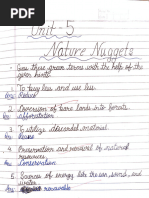 Unit-5
Nature Nuggets
1. Give these green terms with the help of the
given hints.
1. To buy less and use less
Ans: Reduce
2. Conversion of bare lands into forests
Ans: Afforestation
3. To utilize discarded material
Ans: Reuse
4. Preservation and renewal of natural
resources.
Ans: Conservation
5. Sources of energy like the sun, wind, and
water.
renewable